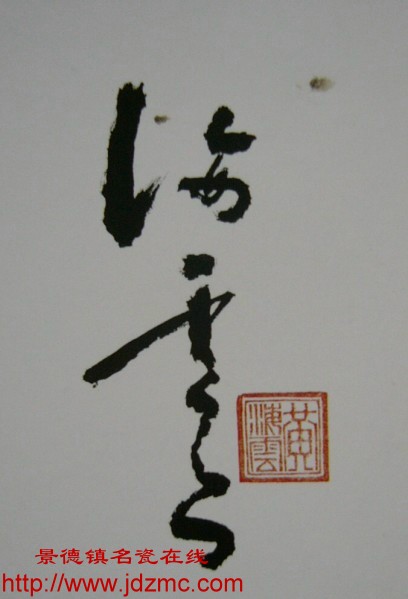 海雲
黄海雲
景德镇名瓷在线
http://www.jdzmc.com